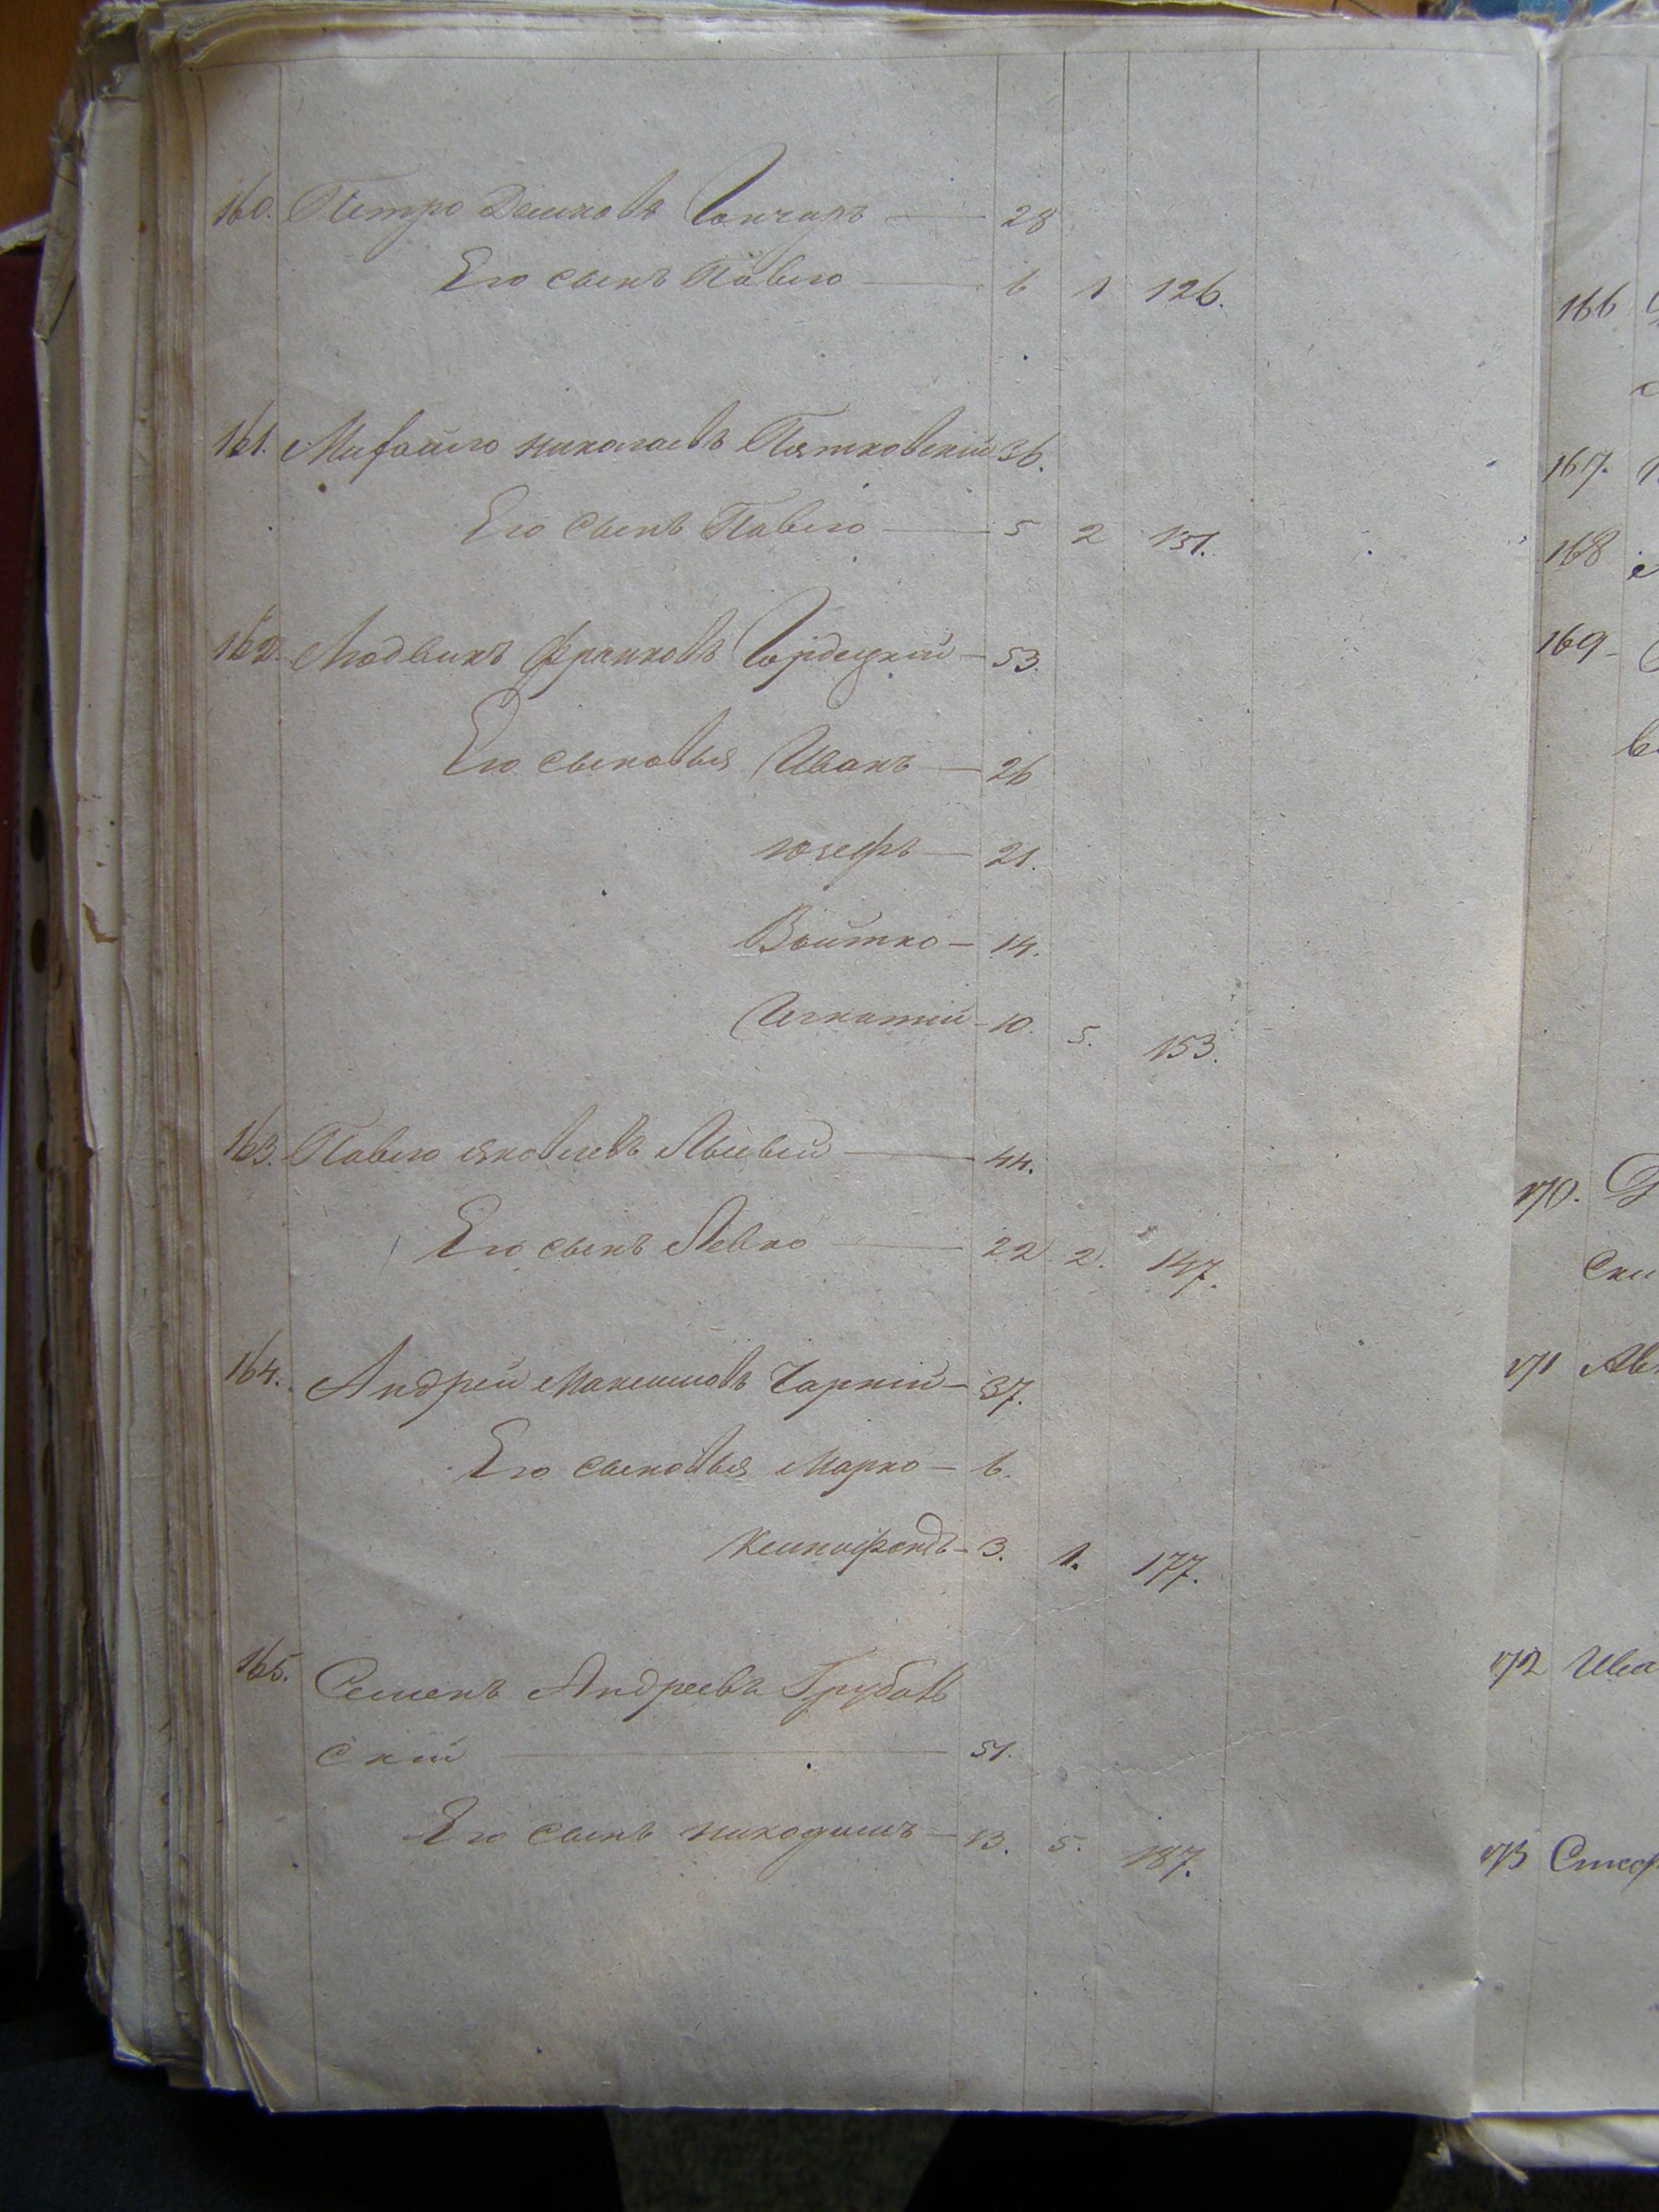 160. Петро Демковъ Гончаръ — 28
Его сынъ Павло — 6 1 126.
161. Михайло Николаевъ Пятковскій 36.
Его сынъ Павло — 5 2 131.
162. Людвикъ Франковъ Гордецкій — 53.
Его сыновья Иванъ — 26
Юзефъ — 21.
Войтко — 14.
Игнатій — 10. 5. 153.
163. Павло Яковлевъ — 44.
Его сынъ Левко — 22 2. 147.
164. Андрей Максимовъ Чарній — 37.
Его сыновья Марко — 6.
Ксенофондъ — 3. 1. 177.
165. Семенъ Андреевъ Грубов
скій — 51.
Его сынъ Никодимъ — 13. 5. 187.
166
167.
168
169
170.
171
172 Ива
173 Стеф